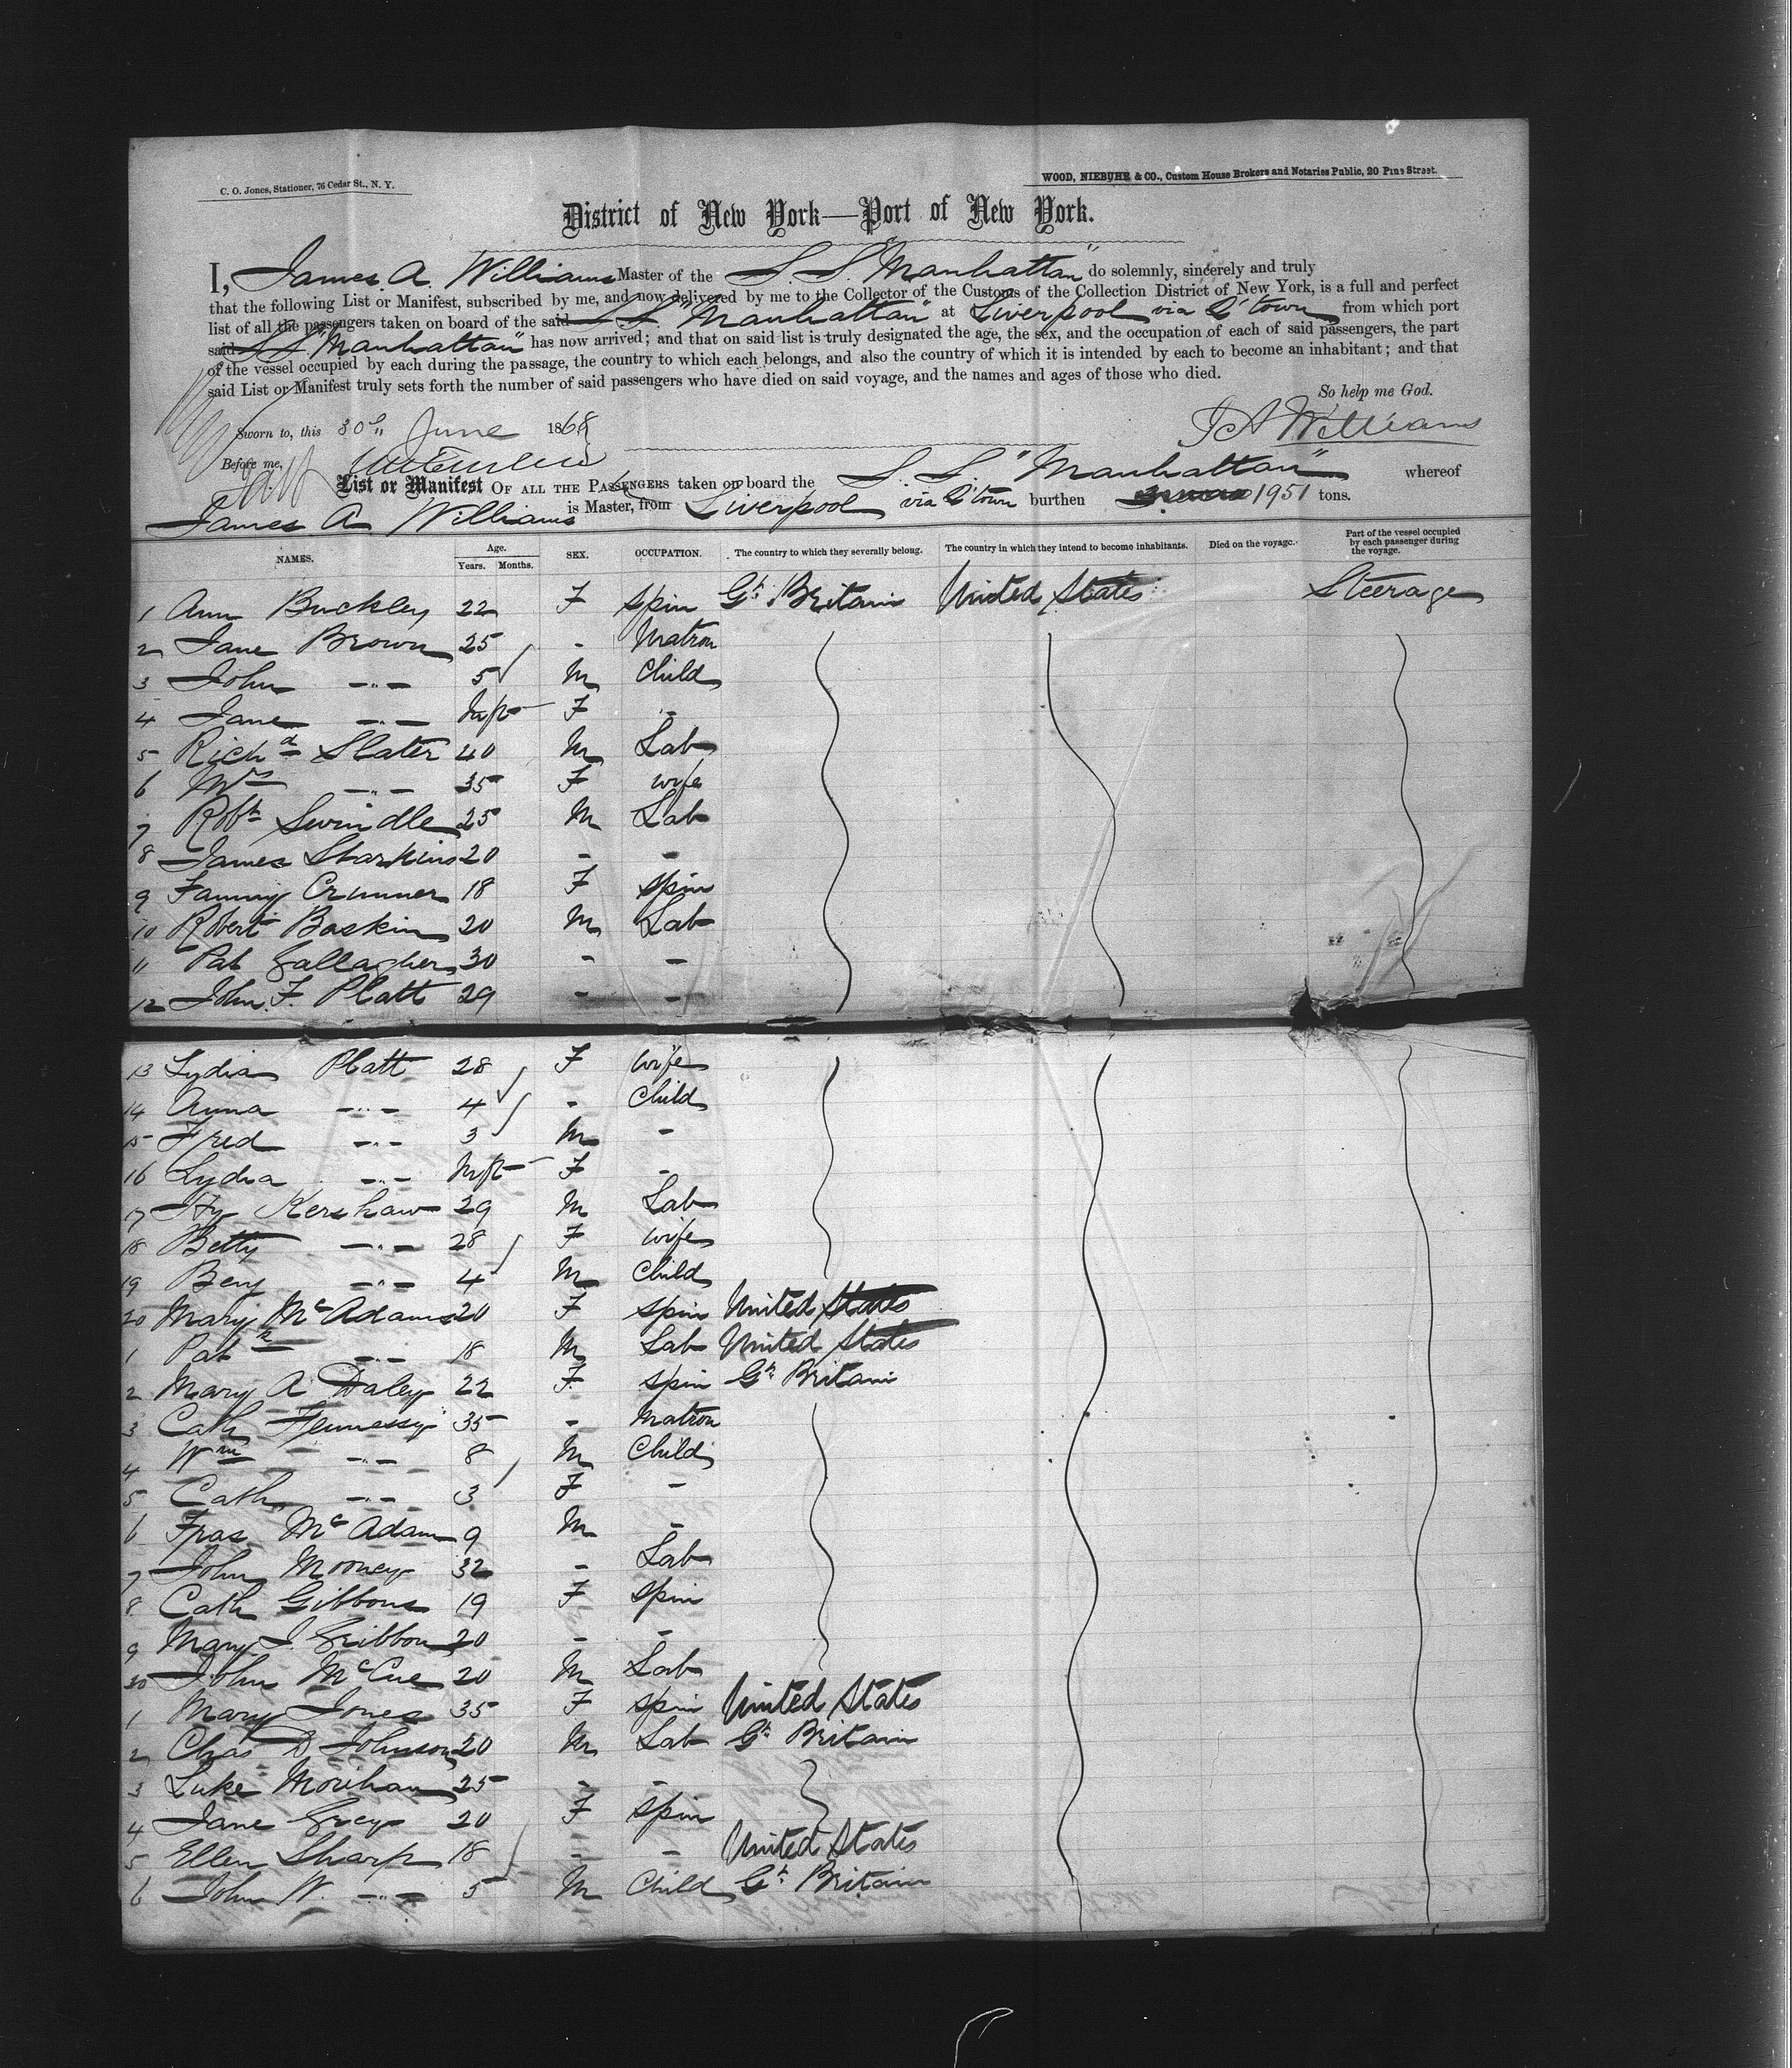 C. O. Jones, Stationer, 76 Cedar St., N. Y.
WOOD, NIEBUHR & CO., Custom House Brokers and Notaries Public, 20 Pine Street.
District of New York—Port of New York.
I, James. A. Williams Master of the S. S. "Manhattan" do solemnly, sincerely and truly
that the following List or Manifest, subscribed by me, and now delivered by me to the Collector of the Customs of the Collection District of New York, is a full and perfect
list of all the passengers taken on board of the said S S. "Manhattan" at Liverpool via Q'town from which port
said S S "Manhattan" has now arrived; and that on said list is truly designated the age, the sex, and the occupation of each of said passengers, the part
of the vessel occupied by each during the passage, the country to which each belongs, and also the country of which it is intended by each to become an inhabitant; and that
said List or Manifest truly sets forth the number of said passengers who have died on said voyage, and the names and ages of those who died.
So help me God.
Sworn to, this 30th June 1868
J A Williams
Before me,
List or Manifest OF ALL THE PASSENGERS taken on board the S. S. "Manhattan" whereof
James A. Williams is Master, from Liverpool via Q'town burthen 1951 tons.
NAMES. Age. Years. Months. SEX. OCCUPATION. The country to which they severally belong. The country in which they intend to become inhabitants. Died on the voyage. Part of the vessel occupied by each passenger during the voyage.
1 Ann Buckley 22 F spin Gt Britain United States Steerage
2 Jane Brown 25 - Matron
3 John -"- 5 M Child
4 Jane -"- Inft F -
5 Richd Slater 40 M Lab
6 Mrs -"- 35 F wife
7 Robt Swindle 25 M Lab
8 James Sharkins 20 - -
9 Fanny Crummer 18 F spin
10 Robert Baskin 20 M Lab
11 Pat Gallagher 30 - -
12 John. F. Platt 29 - -
13 Lydia Platt 28 F wife
14 Anna -"- 4 - Child
15 Fred -"- 3 M -
16 Lydia -"- Inft F -
17 Hy Kershaw 29 M Lab
18 Betty -"- 28 F wife
19 Benj -"- 4 M Child
20 Mary McAdams 20 F spin United States
1 Patk -"- 18 M Lab United States
2 Mary A Daley 22 F spin Gt Britain
3 Cath Hennessy 35 - Matron
4 Wm -"- 8 M Child
5 Cath -"- 3 F -
6 Fras McAdam 9 M -
7 John Mooney 32 - Lab
8 Cath Gibbons 19 F spin
9 Mary J. Gribbon 20 - -
30 John McCue 20 M Lab
1 Mary Jones 35 F spin United States
2 Chas D Johnson 20 M Lab Gt Britain
3 Luke Morihan 25 - -
4 Jane Grey 20 F spin
5 Ellen Sharp 18 - - United States
6 John W. -"- 5 M Child Gt Britain